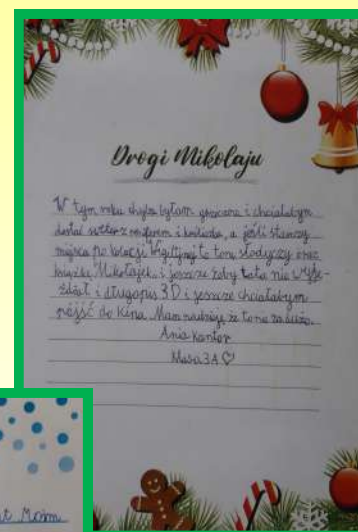 Drogi Mikołaju
W tym roku chyba byłam grzeczna i chciałabym
dostać sweter z reniferem i, a jeśli starczy
miejsca po kolacji Wigilijnej to tonę słodyczy oraz
książkę Mikołajek i jeszcze żeby tata nie wyje-
żdżał i długopis 3D i jeszcze chciałabym
pójść do kina. Mam nadzieję, że to nie za dużo.
Ania Kantor
klasa 3A ♡